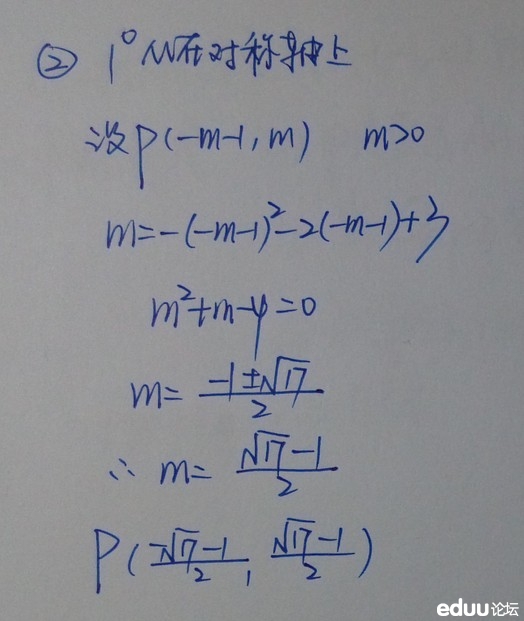 ② 1° M在对称轴上
设P(-m-1, m)  m>0
m=-(-m-1)²-2(-m-1)+3
m²+m-4=0
m=(-1±√17)/2
∴ m=(√17-1)/2
P((-√17-1)/2, (√17-1)/2)
eduu论坛